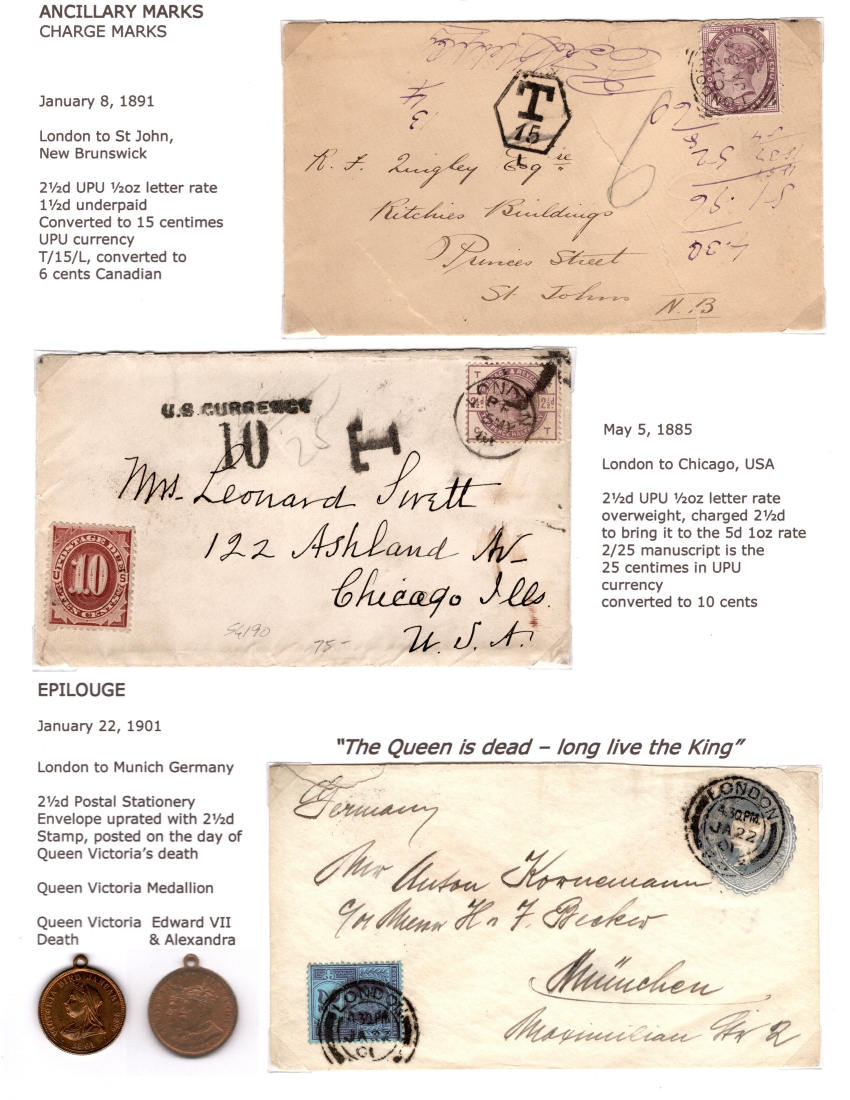 ANCILLARY MARKS
CHARGE MARKS
January 8, 1891
London to St John,
New Brunswick
2½d UPU ½oz letter rate
1½d underpaid
Converted to 15 centimes
UPU currency
T/15/L, converted to
6 cents Canadian
T
15
L
R. F. Quigley Esqre
Ritchies Buildings
Princes Street
St Johns N.B
13
4
6
4.30
.96
52
U.S. CURRENCY
10
25
T
LONDON
2½d
T
T
Mrs. Leonard Swett
122 Ashland Av
Chicago Ills.
U.S.A.
POSTAGE DUE
10
TEN CENTS
SG190
75-
May 5, 1885
London to Chicago, USA
2½d UPU ½oz letter rate
overweight, charged 2½d
to bring it to the 5d 1oz rate
2/25 manuscript is the
25 centimes in UPU
currency
converted to 10 cents
EPILOUGE
January 22, 1901
London to Munich Germany
2½d Postal Stationery
Envelope uprated with 2½d
Stamp, posted on the day of
Queen Victoria's death
Queen Victoria Medallion
Queen Victoria Edward VII
Death & Alexandra
"The Queen is dead – long live the King"
Germany
LONDON
4.30PM
JA 22
01
Mr Anton Kornemann
c/o Menn H & F. Becker
München
Maximilian Str 2
LONDON
JA 22
01